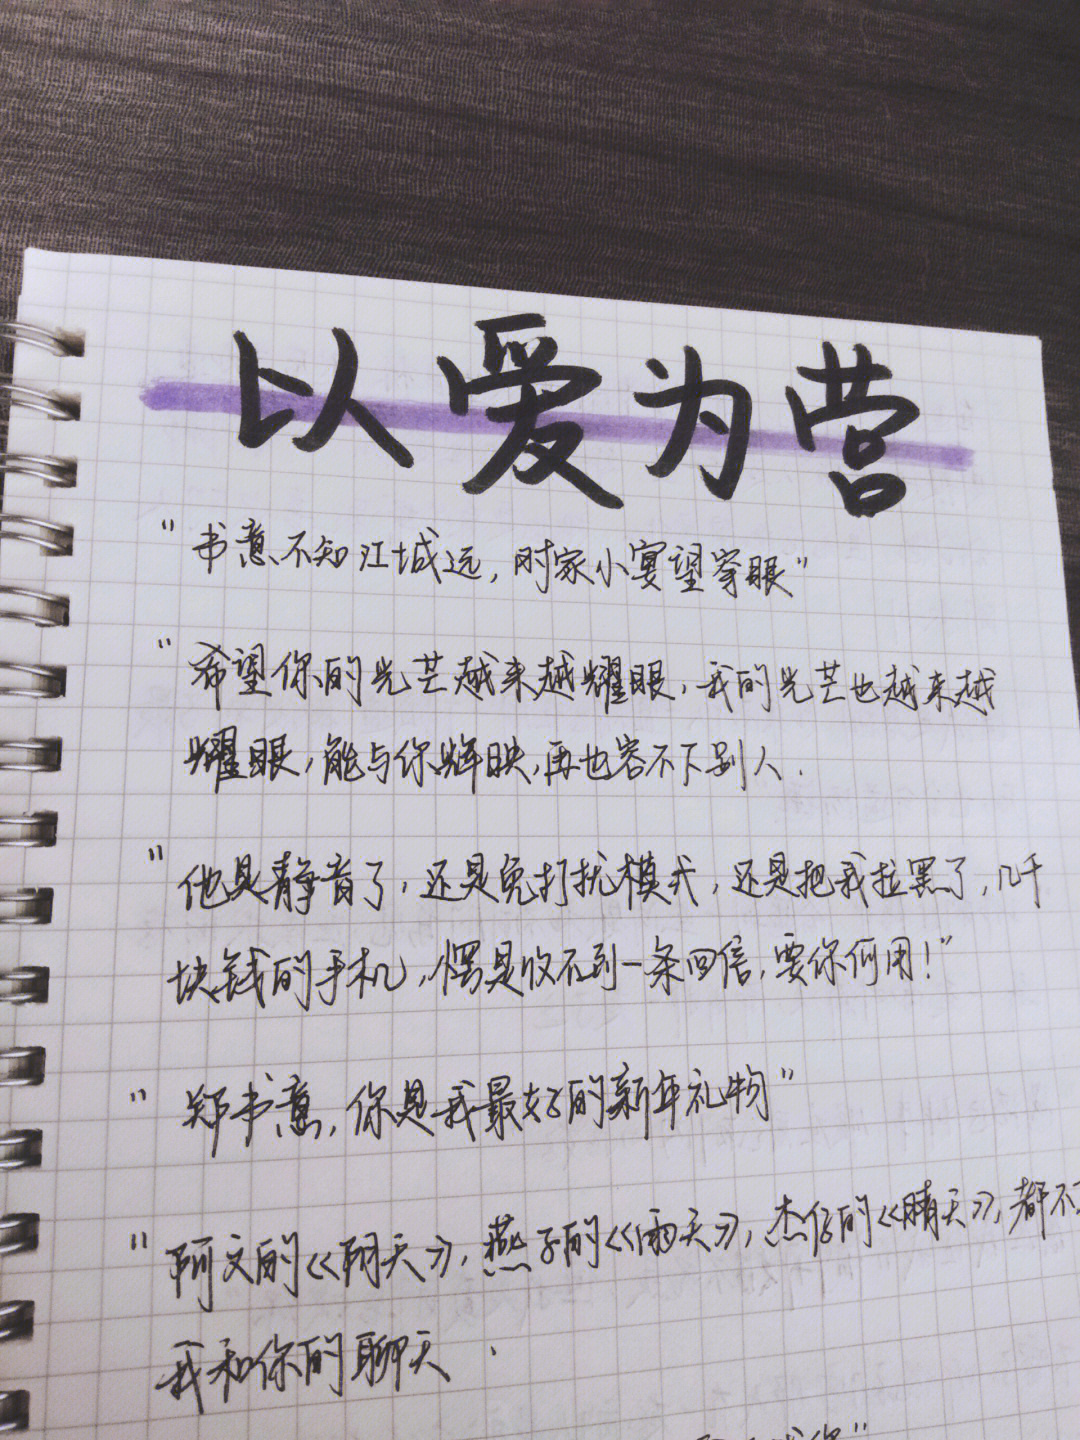 以爱为营
"书意不知江城远,时家小宴望峯眼"
"希望你的光芒越来越耀眼,我的光芒也越来越
耀眼,能与你辉映,再也容不下别人.
"他是静音了,还是免打扰模式,还是把我拉黑了,几千
块钱的手机,愣是收不到一条回信,要你何用!"
"郑书意,你是我最好的新年礼物"
"阿文的《阴天》,燕子的《雨天》,杰伦的《晴天》,都不
我和你的聊天.